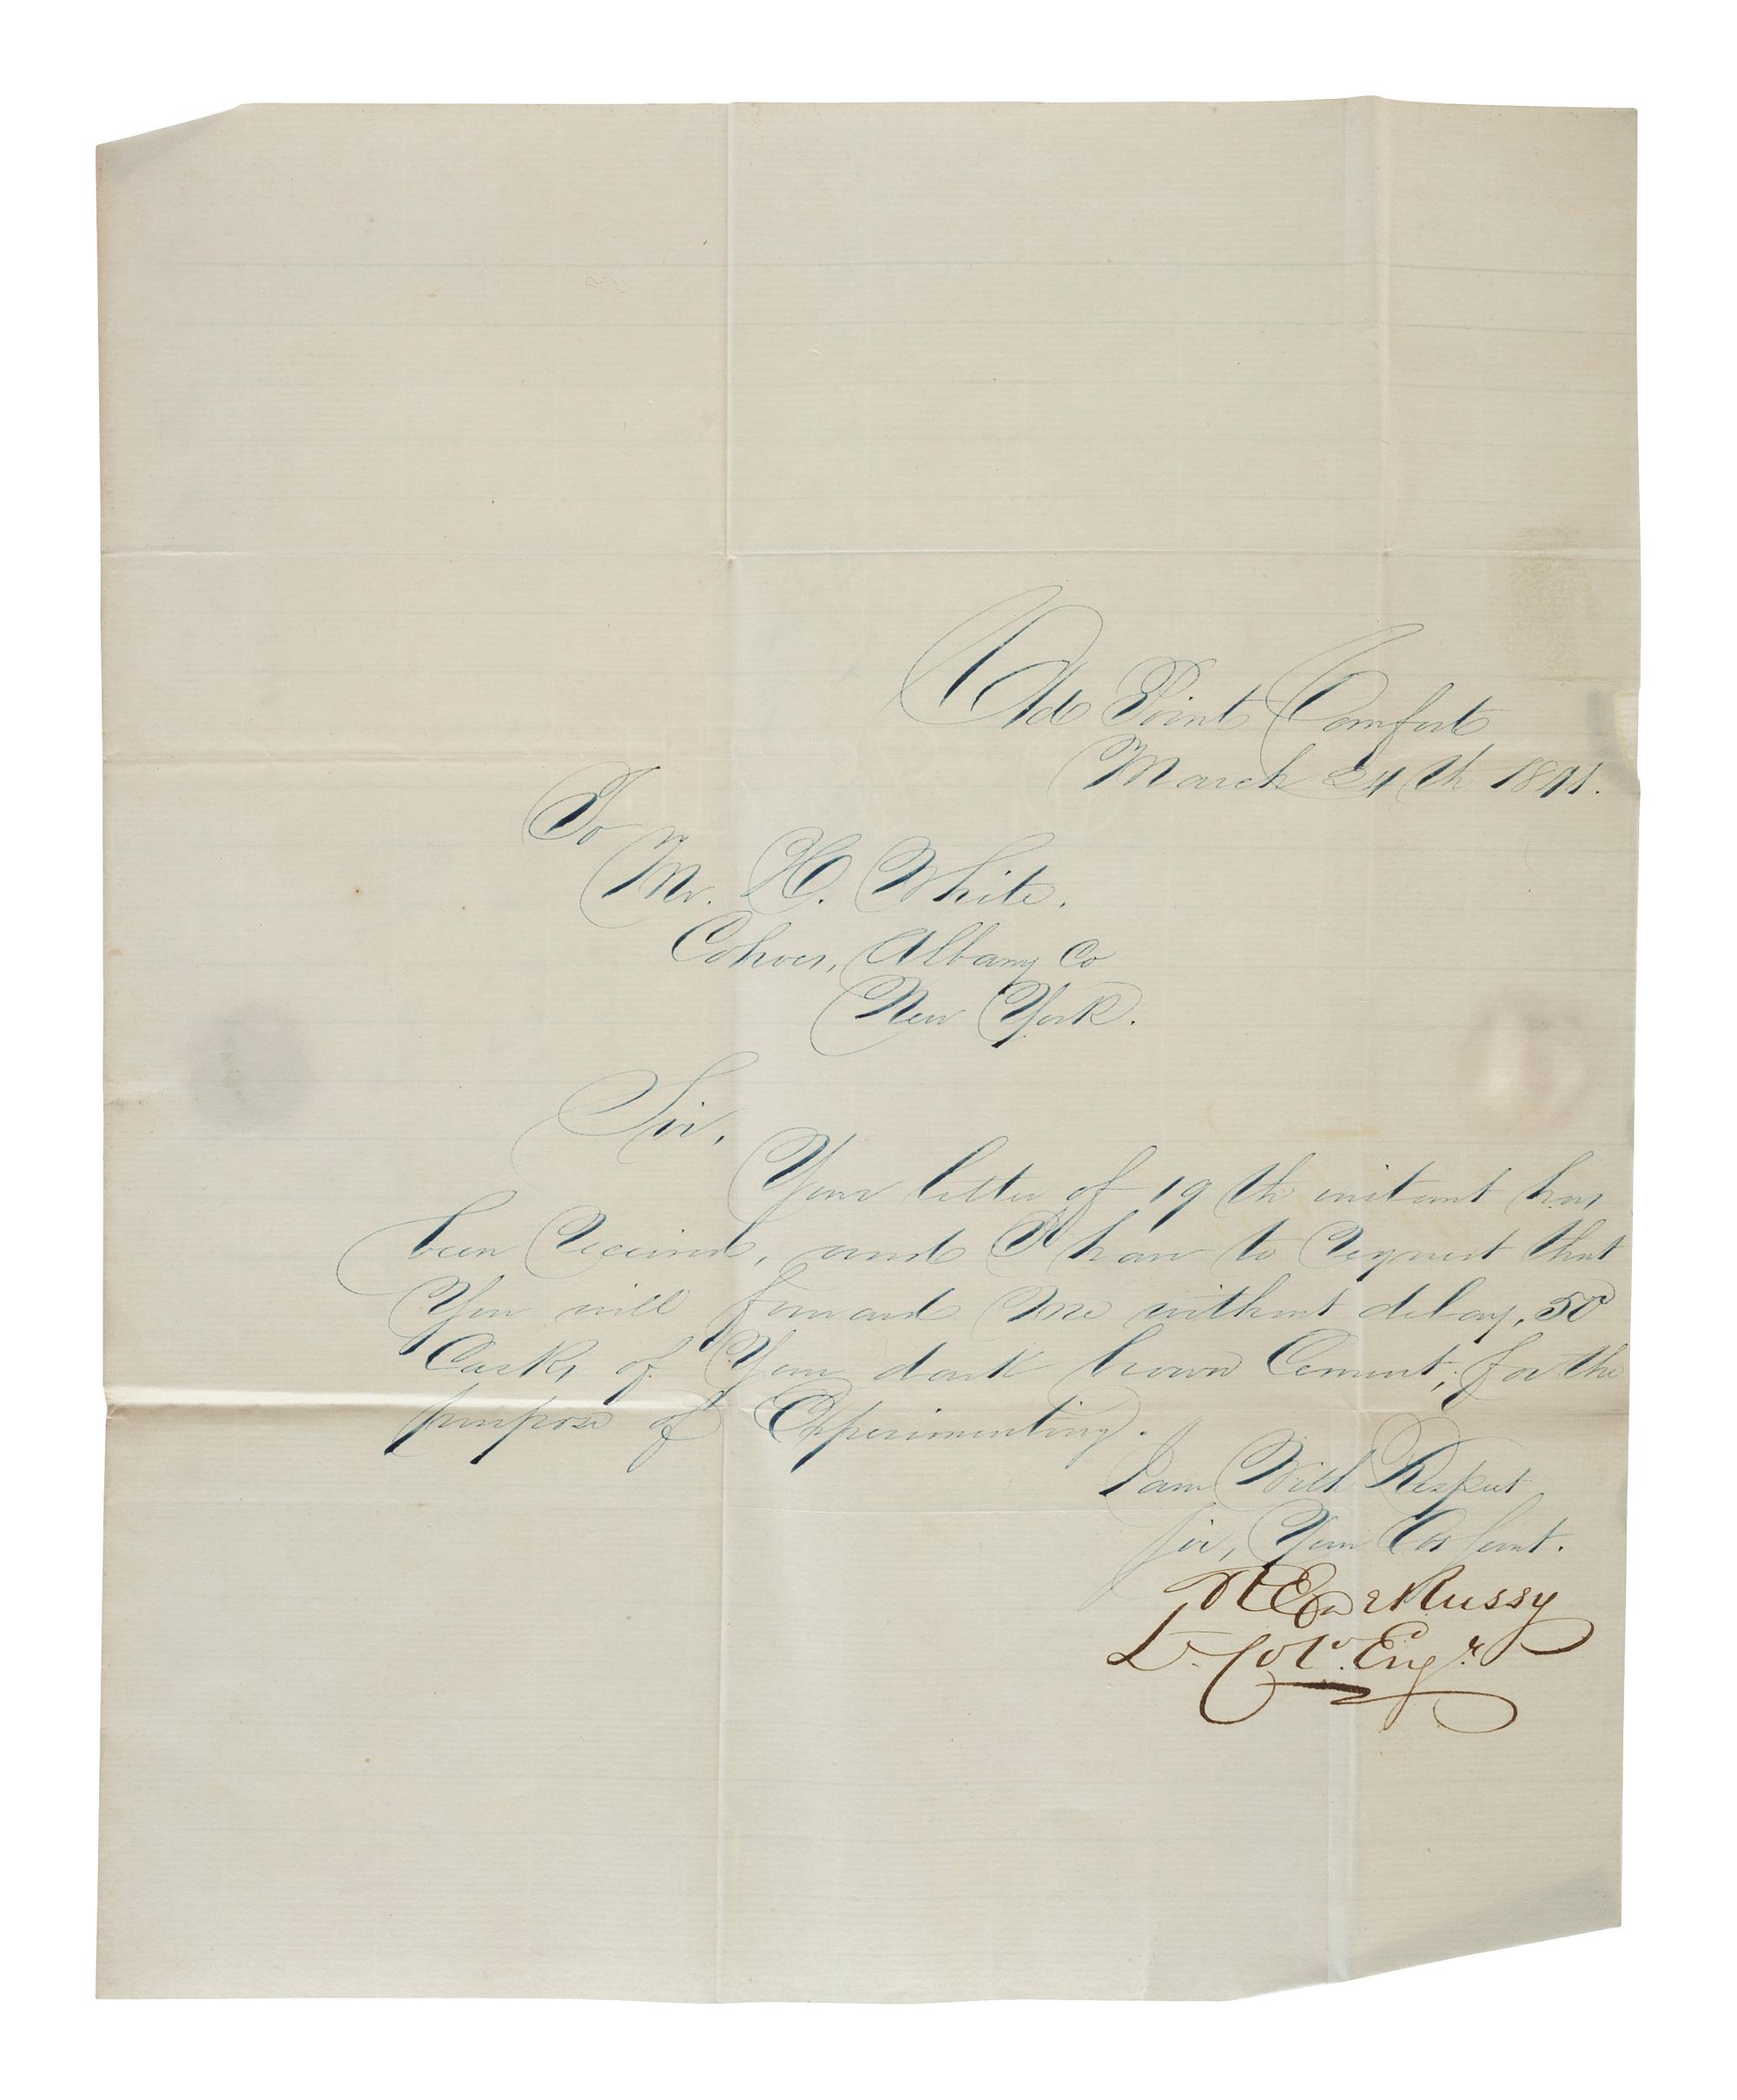 Old Point Comfort
March 24th 1841.
To
Mr. H. White.
Cohoes, Albany Co
New York.
Sir,
Your letter of 19th instant has
been Received, and I have to Request that
You will forward me without delay, 50
Casks of Your dark brown Cement, for the
purpose of Experimenting.
I am With Respect
Sir, Your Ob Servt.
R E DeRussy
Lt. Col. Engrs